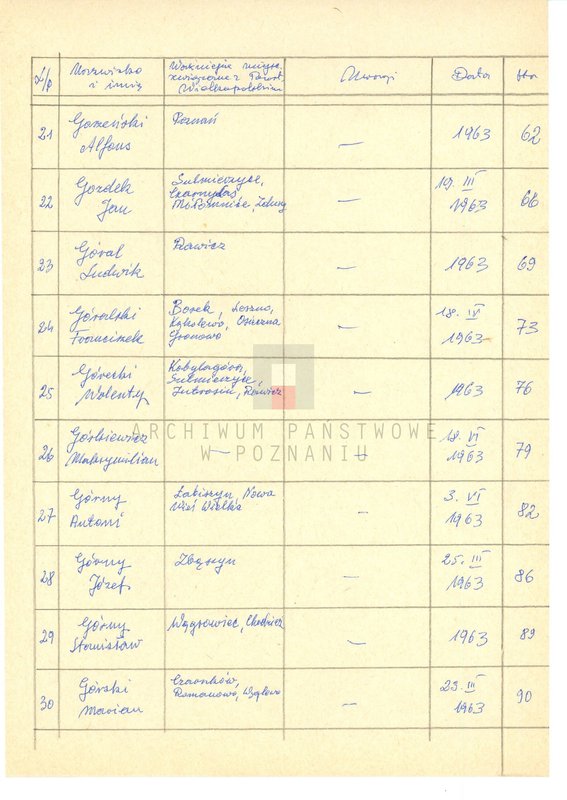 L/p Nazwisko i imię Uwagi Data Str
21 Gorzeński Alfons Poznań — 1963 62
22 Gozdek Jan Sulmierzyce, — 19. III 1963 66
23 Góral Ludwik Rawicz — 1963 69
24 Góralski Franciszek Borek, Leszno, Kąkolewo, Osieczna Gronowo — 18. IV 1963 73
25 Górecki Walenty Kobylagóra, Sulmierzyce, Jutrosin, Rawicz — 1963 76
26 Górkiewicz Maksymilian — — 18. VI 1963 79
27 Górny Antoni Łabiszyn, Nowa Wieś Wielka — 3. VI 1963 82
28 Górny Józef Zbąszyn — 25. III 1963 86
29 Górny Stanisław Wągrowiec, Chodzież — 1963 89
30 Górski Marian Czarnków, Romanowo, — 23. III 1963 90
ARCHIWUM PAŃSTWOWE
W POZNANIU